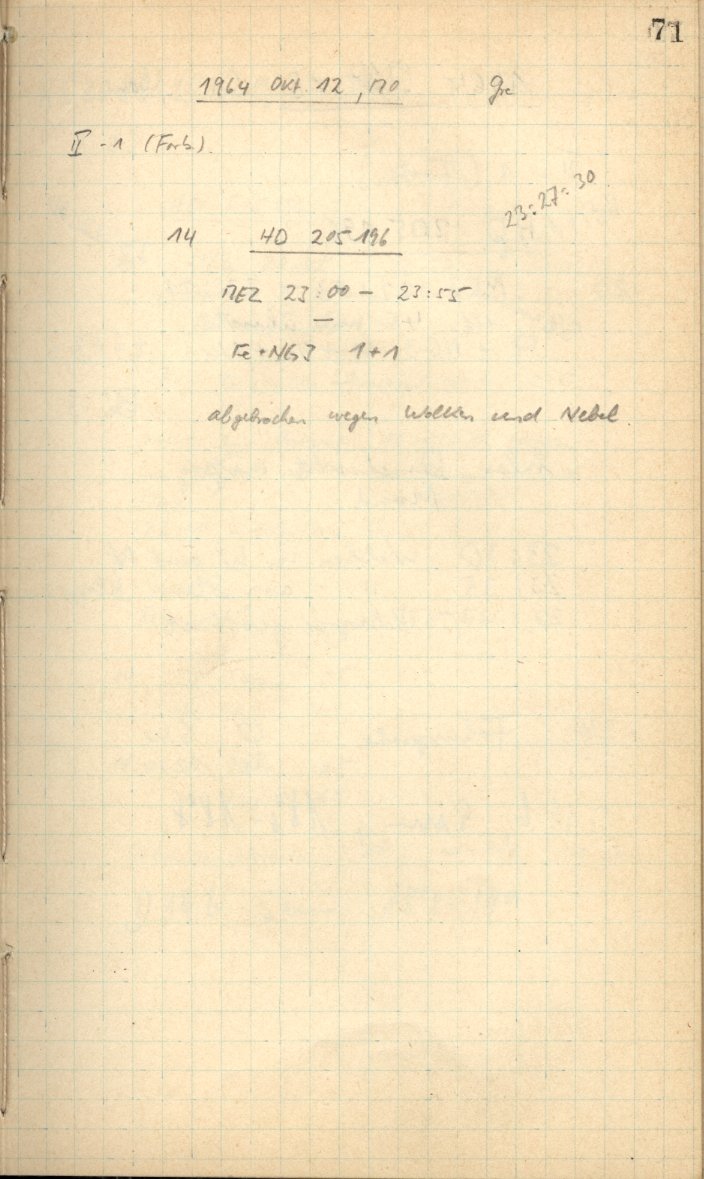 71
1964 Okt. 12, MO Gre
II - 1 (Farb.)
23:27:30
14 HD 205 196
MEZ 23:00 - 23:55
—
Fe + NG3 1+1
abgebrochen wegen Wolken und Nebel.